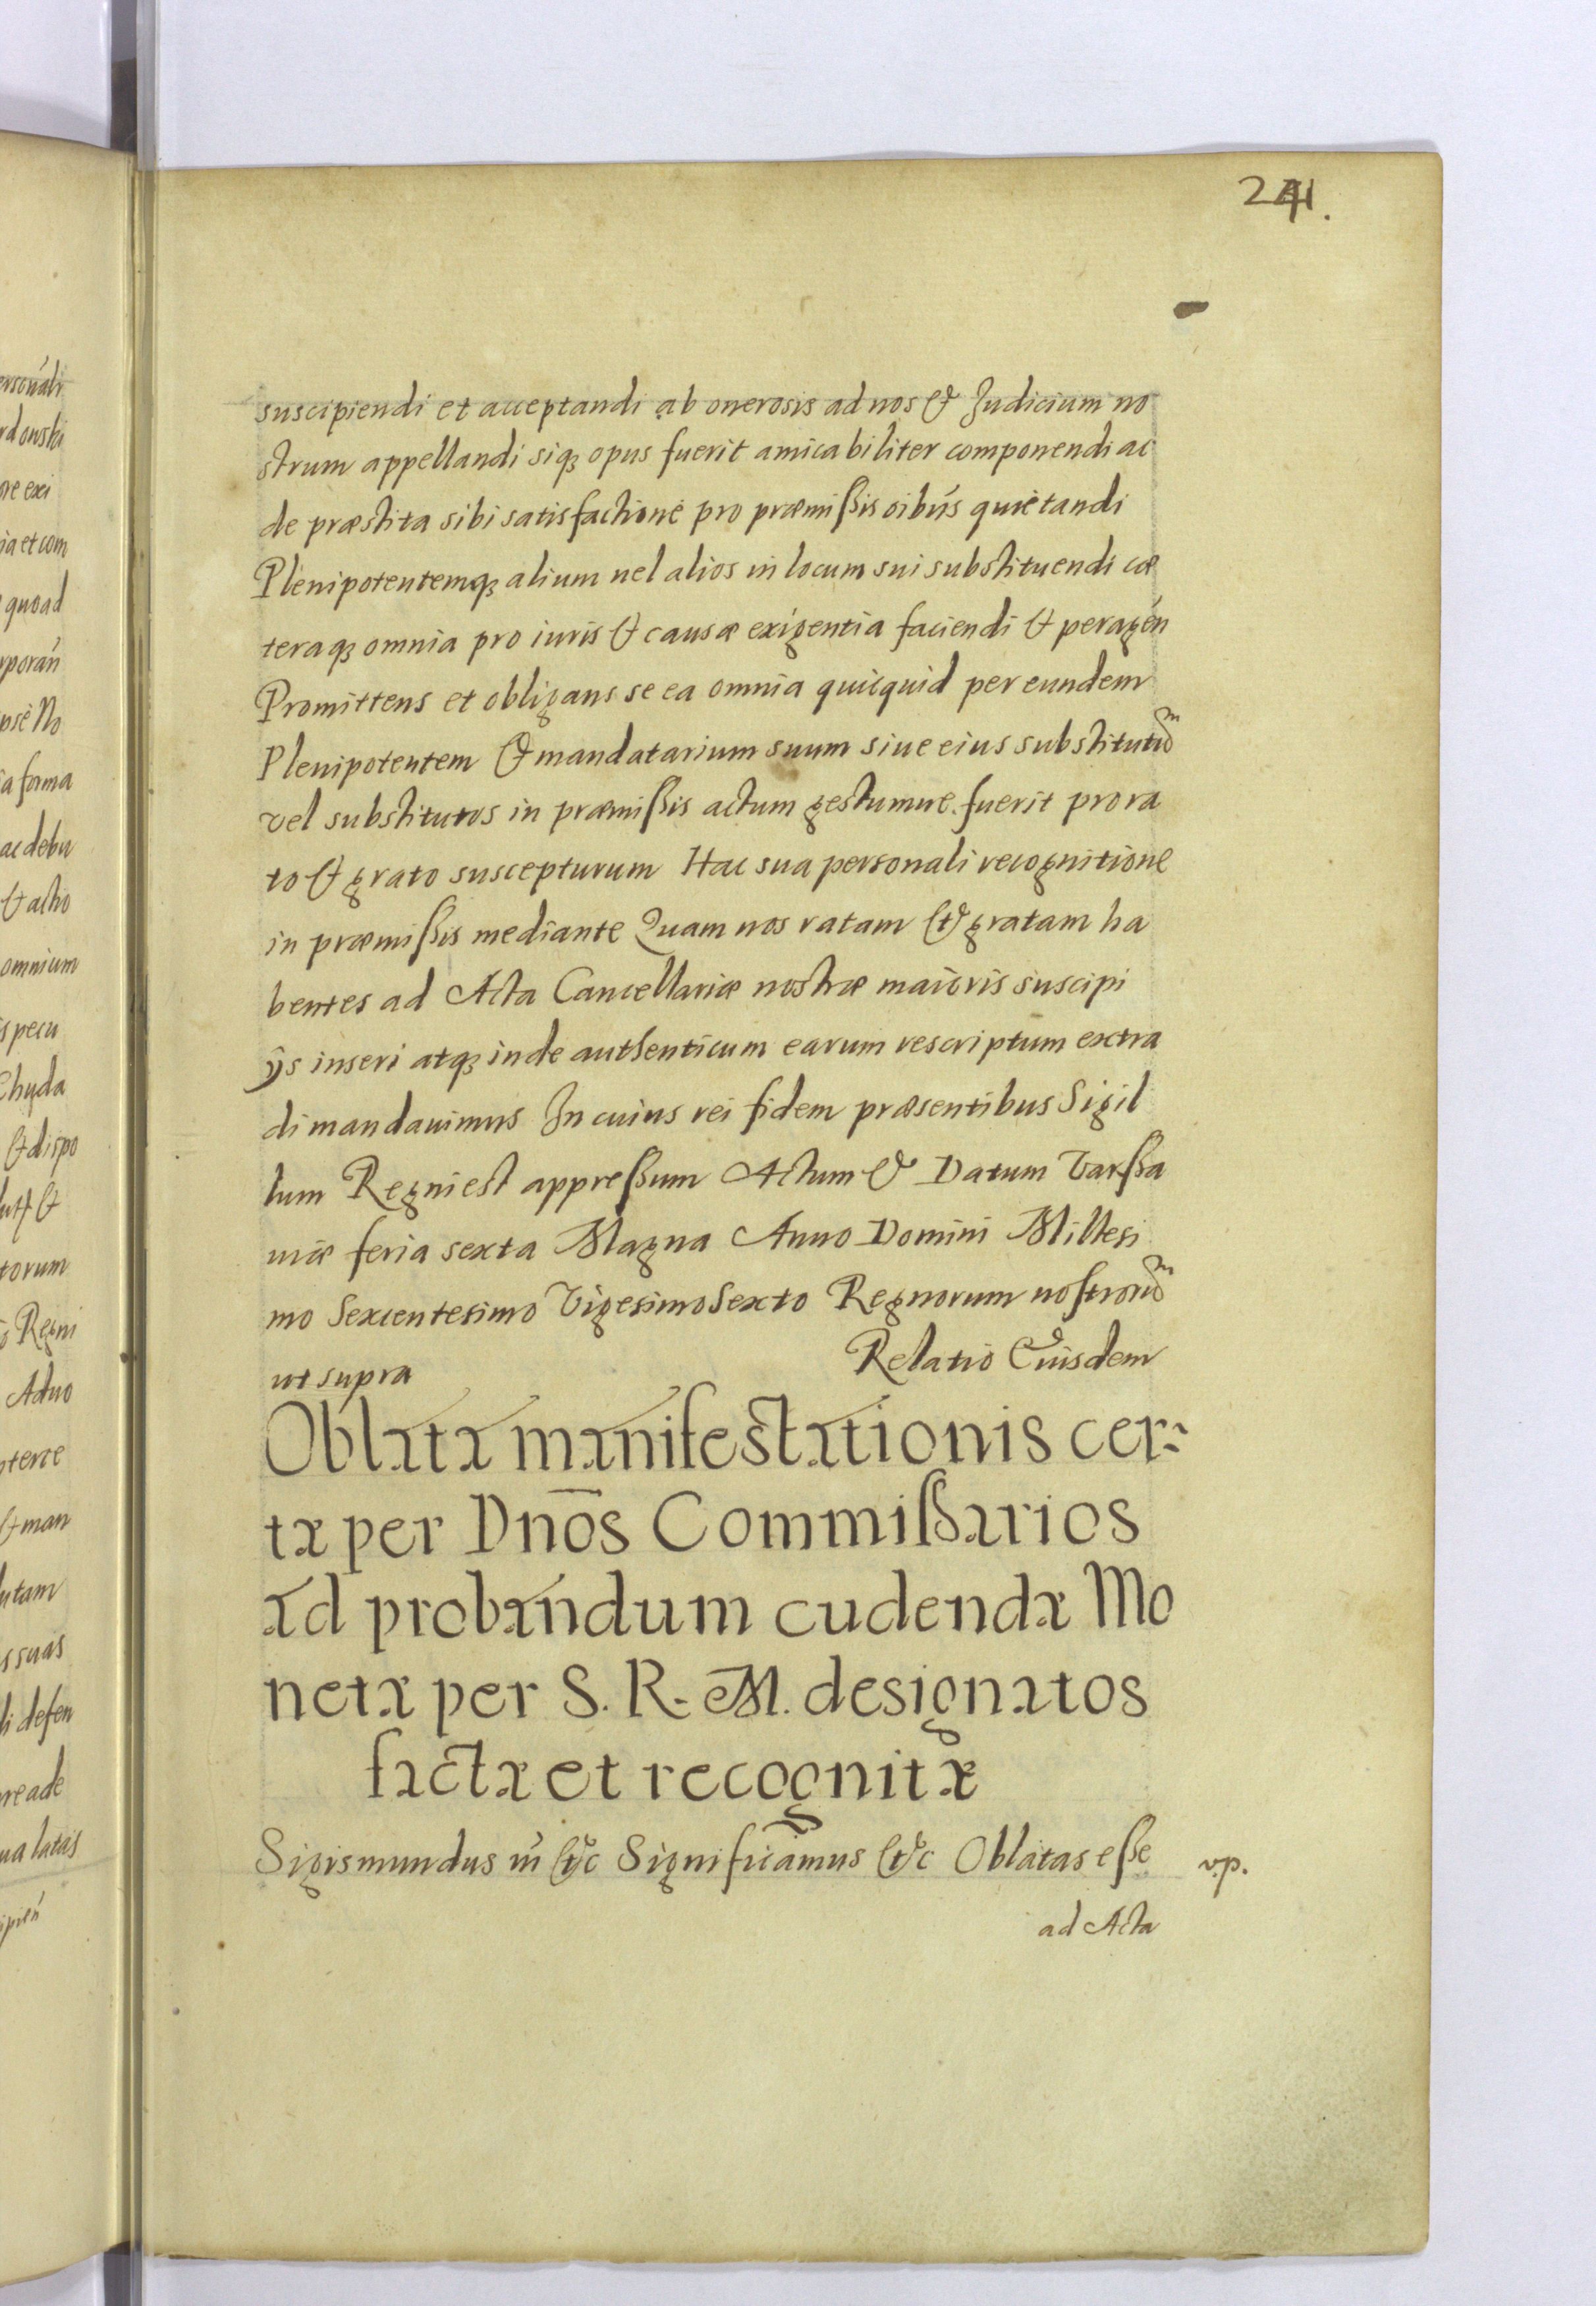 241.
suscipiendi et acceptandi ab onerosis ad nos & Judicium no
strum appellandi siq₃ opus fuerit amicabiliter componendi ac
de præstita sibi satisfactione pro præmißis oibus quietandi
Plenipotentemq₃ alium uel alios in locum sui substituendi cæ
teraq₃ omnia pro iuris & causæ exigentia faciendi & peragen
Promittens et obligans se ea omnia quicquid per eundem
Plenipotentem & mandatarium suum siue eius substitutuᵐ
vel substitutos in præmißis actum gestumue fuerit pro ra
to & grato suscepturum Hac sua personali recognitione
in præmißis mediante Quam nos ratam & gratam ha
bentes ad Acta Cancellariæ nostræ maioris suscipi
ÿs inseri atq₃ inde authenticum earum rescriptum extra
di mandauimus In cuius rei fidem præsentibus Sigil
lum Regni est appreßum Actum & Datum Varßa
uiæ feria sexta Magna Anno Domini Millesi
mo Sexcentesimo Vigesimo Sexto Regnorum nostroruᵐ
ut supra Relatio Eiusdem
Oblata manifestationis cer
tæ per Dnōs Commißarios
ad probandum cudendæ Mo
netæ per S. R. M. designatos
factæ et recognitæ
Sigismundus iii &c Significamus &c Oblatas eße v.p.
ad Acta